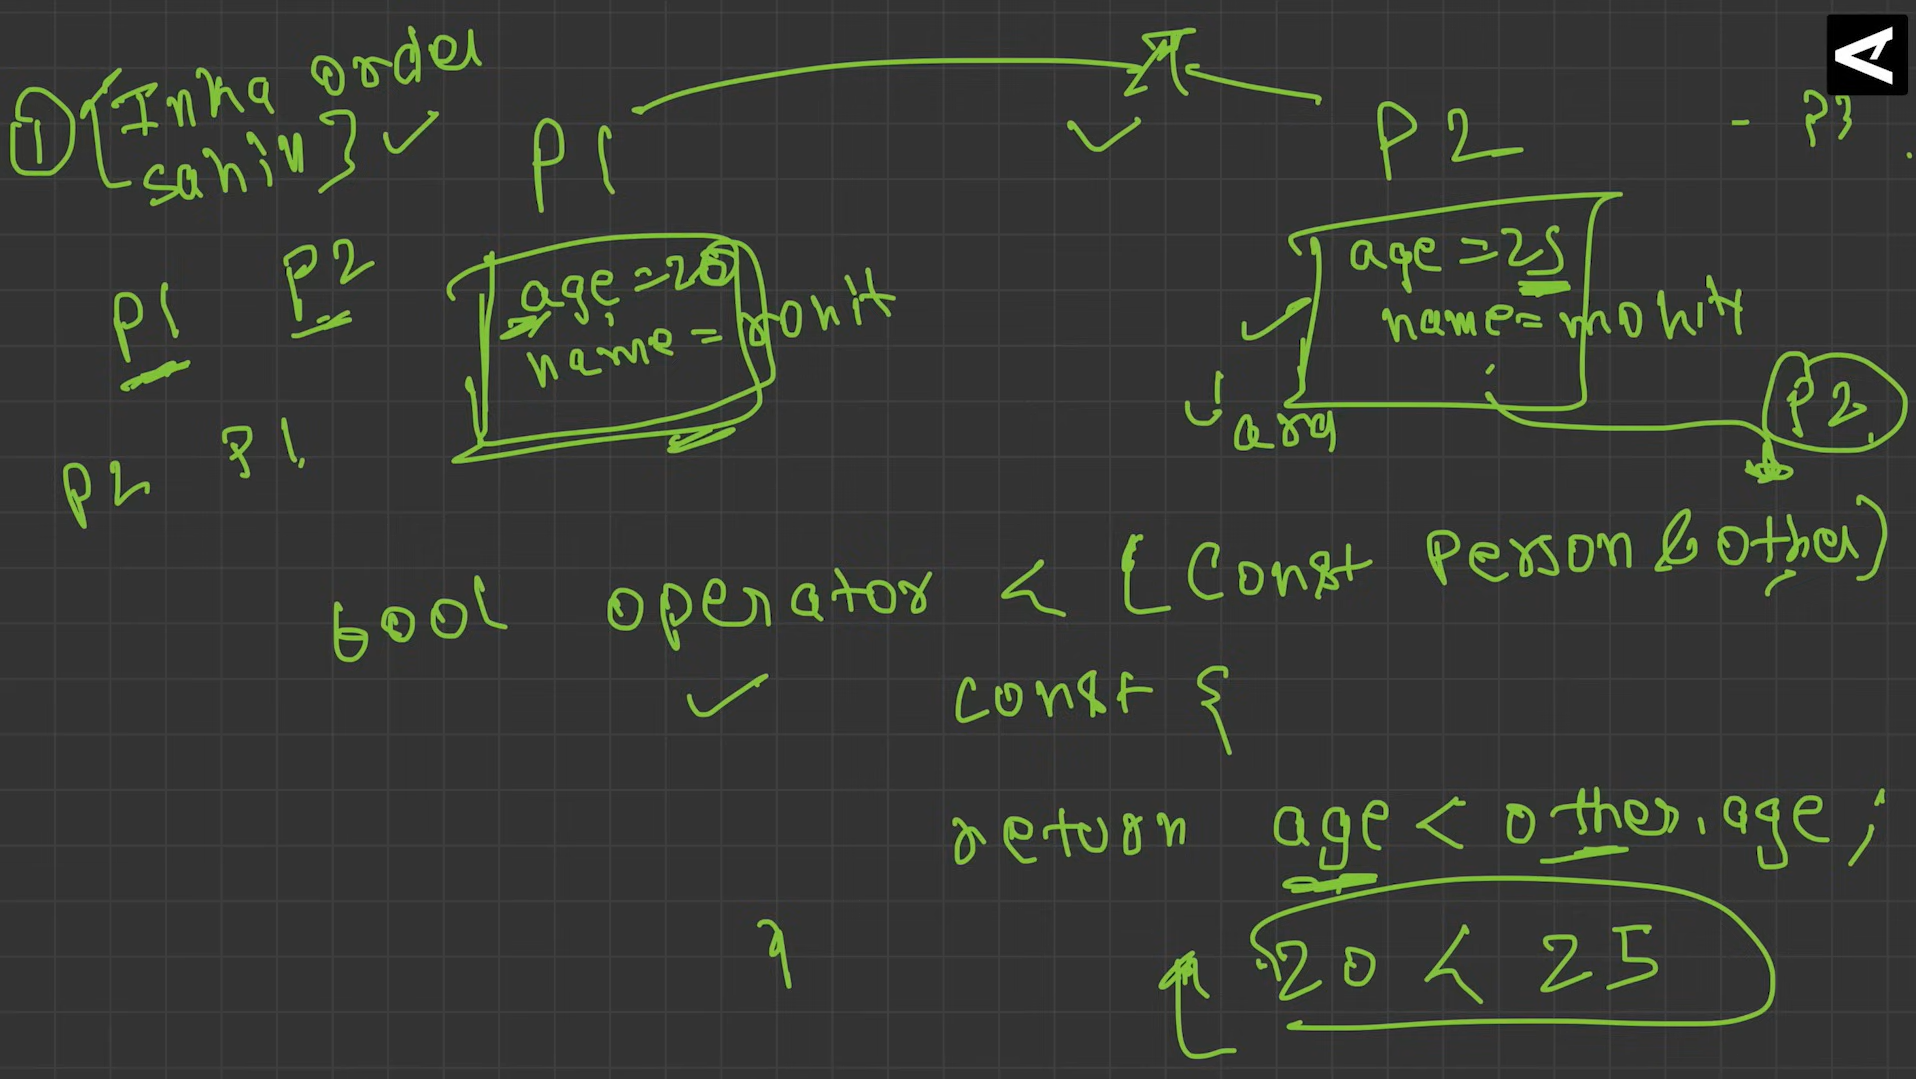 ① [Inka order
sahi h] ✓
P1
P2
- P3
P1 P2
age = 20
name = rohit
age = 25
name = mohit
P2
P2 P1
arg
bool operator < (Const Person & other)
const {
return age < other.age;
20 < 25